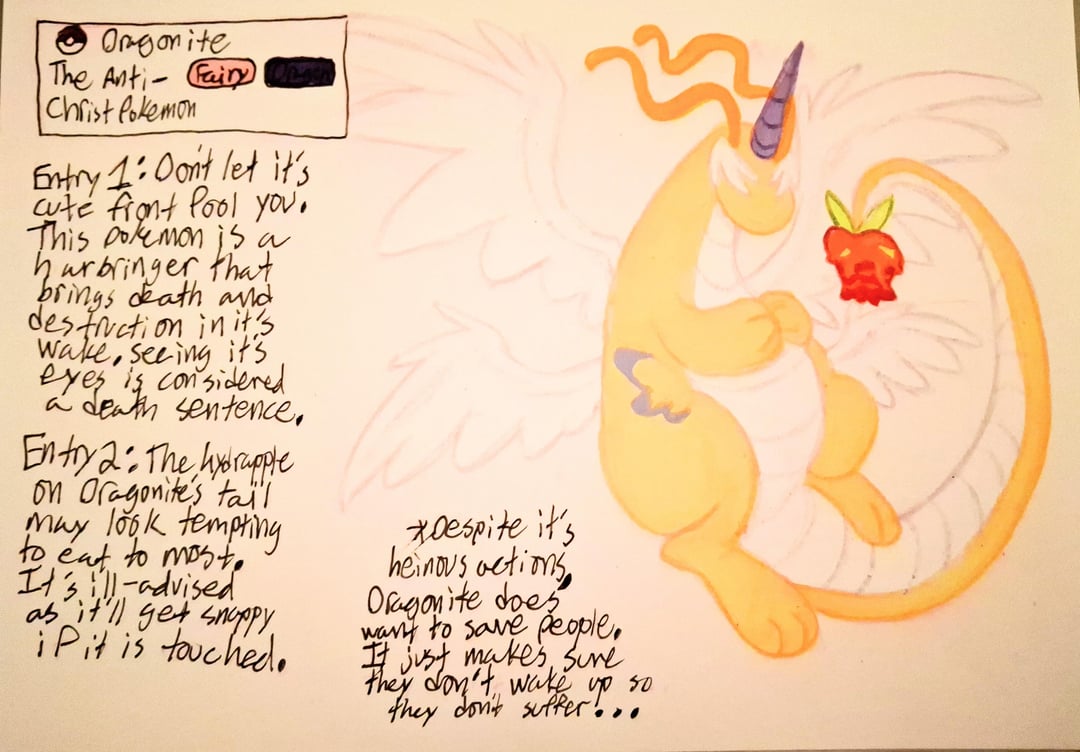 Dragonite
The Anti- Fairy Dragon
Christ Pokemon
Entry 1: Don't let it's
cute front fool you.
This pokemon is a
harbringer that
brings death and
destruction in it's
wake. seeing it's
eyes is considered
a death sentence.
Entry 2: The hydrapple
on Dragonite's tail
may look tempting
to eat to most.
It's ill-advised
as it'll get snappy
if it is touched.
*Despite it's
heinous actions,
Dragonite does
want to save people.
It just makes sure
they don't wake up so
they don't suffer...